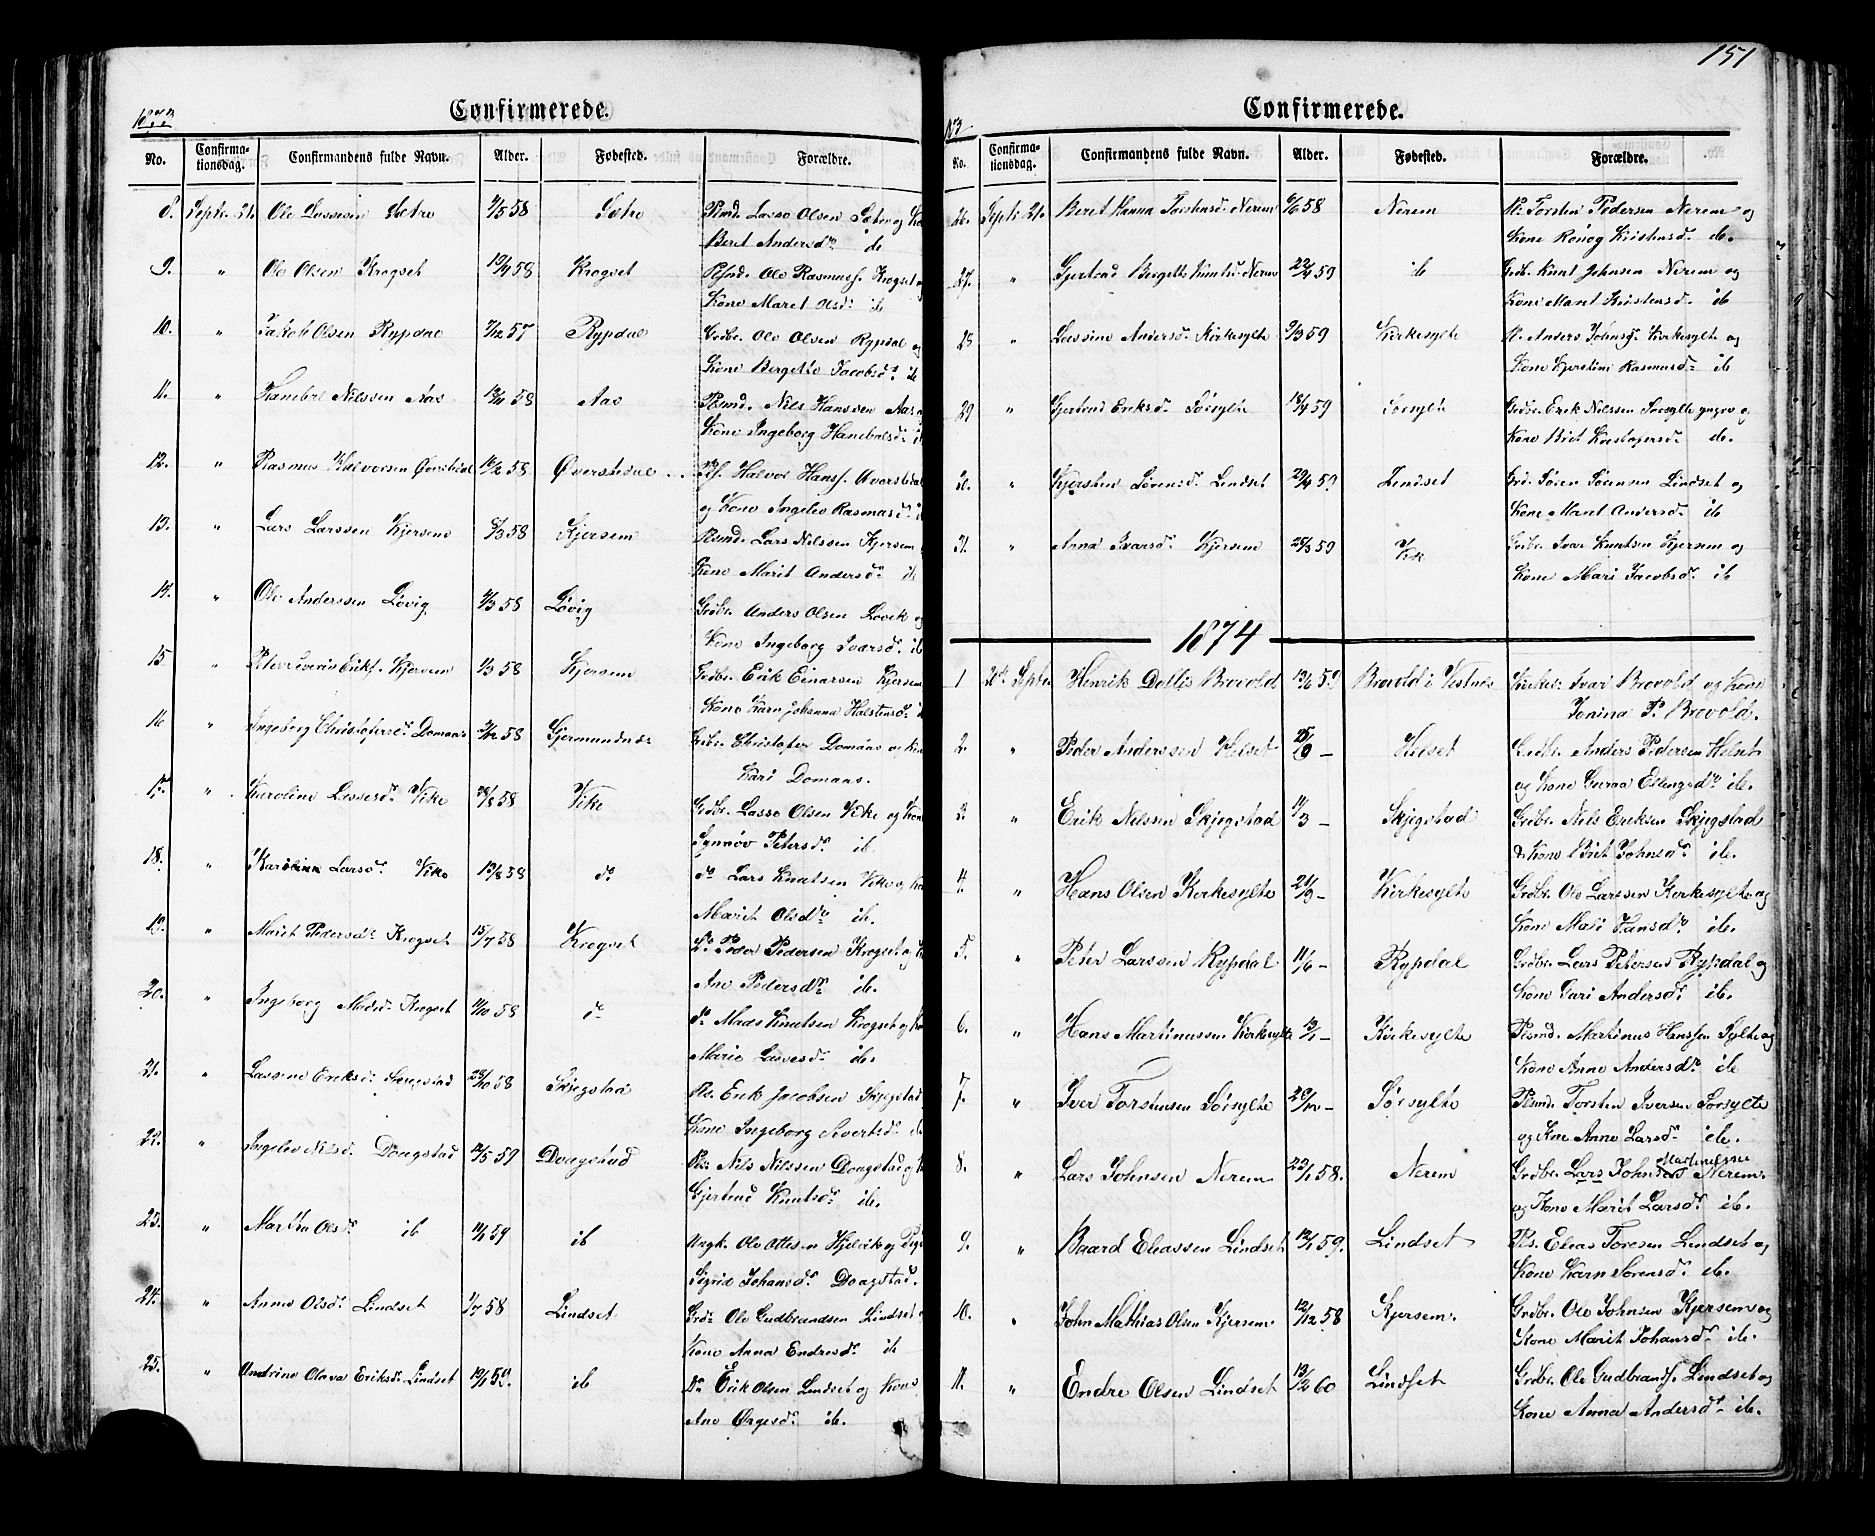 1873
Confirmerede.
No. Confirmationsdag. Confirmandens fulde Navn. Alder. Fødested. Forældre.
8. Septr. 21. Ole Lassesen Sætre 58 Sætre Plmd. Lasse Olsen Sætre og
Beret Andersdr ib
9. " Ole Olsen Krogset 58 Krogset Ole Rasmuss. Krogset og
Kone Maret Olsdr ib
10. " Jakob Olsen Rypdal 7/12 57 Rypdal Grdbr. Ole Olsen Rypdal og
Kone Bergitte Jacobsdr ib
11. " Hanibal Nilssen Aas 58 Aas Plsmd. Nils Hanssen Aas
Kone Ingeborg Hanibalsdr ib
12. " Rasmus Halvorsen 16/2 58 Øverstedal Halvor Hanss. Øverstedal
og Kone Ingelev Rasmusdr
13. " Lars Larssen Kjersem 58 Kjersem Plsmd. Lars Nilssen Kjersem
Kone Marit Andersdr ib
14. " Ole Anderssen Løvig 58 Løvig Grdbr. Anders Olsen Løvik og
Kone Ingeborg Ivarsdr ib
15. " Peter Severin Erikss. Kjersem 58 Kjersem Grdbr. Erik Einarsen Kjersem
Kone Karn Johanna Halstensdr
16 " Ingeborg Christofersdr Domaas 58 Gjermundnæs Grdbr. Christofer Domaas og
Kari Domaas.
17. " Karoline Lassesdr Vike 58 Vike Grdbr. Lasse Olsen Vike og
Synnøv Petersdr ib
18. " Karoline Larsdr Vike 13/8 58 do do Lars Knutsen Vike og
Marit Olsdr ib.
19. " Marit Pedersdr Krogset 15/7 58 Krogset Do Peder Pedersen Krogset og
Ane Pedersdr ib.
20. " Ingeborg Madsdr Krogset 58 do do Mads Knutsen Krogset og
Marie Lassesdr ib.
21. " Lassine Eriksdr Skjegstad 28/10 58 Skjegstad Pls. Erik Jacobsen Skjegstad
Kone Ingeborg Sivertsdr
22. " Ingelev Nilsdr Daagstad 59 Daagstad Pls. Nils Nilssen Daagstad og
Gjertrud Knutsdr ib.
23. " Martha Olsdr ib 59 ib Ungk. Ole Ottesen Hjelvik og Pige
Sigrid Johansdr Daagstad.
24. " Anne Olsdr Lindset 58 Lindset Ole Gudbrandsen Lindset
Kone Anna Endresdr ib
25. " Andrine Olava Eriksdr Lindset 59. ib Do Erik Olsen Lindset og Kone
Ane Ørgesdr ib.
151
Confirmerede.
No. Confirmationsdag. Confirmandens fulde Navn. Alder. Fødested. Forældre.
26. Septr. 21. Beret Hanna Torstensdr Nerem 58 Nerem Torsten Pedersen Nerem og
Kone Rønog Kristensdr ib.
27. " Gjertrud Bergitte Knutsdr Nerem 22/4 59 ib Grdb. Knut Johnsen Nerem og
Kone Marit Kristensdr ib
28 " Lassine Andersdr Kirkesylte 59 Kirkesylte Anders Johnss. Kirkesylte og
Kone Kjerstine Rasmusdr ib
29 " Gjertrud Eriksdr Sørsylte 18/4 59 Sørsylte Grdbr. Erik Nilssen Sørsylte yngre og
Kone Brit ib.
30. " Kjersten Sørensdr Lindset 29/4 59 Lindset Grd. Søren Sørensen Lindset og
Kone Marit Andersdr ib
31. " Anna Ivarsdr Kjersem 59 Vik Grdbr. Ivar Knutsen Kjersem og
Kone Mari Jacobsdr ib
1874
1 20de Septbr Henrik Dallis Brovold 59 Brovold i Vestnes Kirkes. Ivar Brovold og Kone
Jonina P. Brovold.
2. " Peder Anderssen Helset – Helset Grdbr. Anders Pedersen Helset
og Kone Guraa Ellingsdr ib.
3. " Erik Nilssen Skjegstad – Skjegstad Grdbr. Nils Eriksen Skjegstad
& Kone Brit Johnsdr ib.
4. " Hans Olsen Kirkesylte 21/9 – Kirkesylte Grdbr. Ole Larssen Kirkesylte og
Kone Mali Hansdr ib.
5. " Peter Larssen Rypdal 11/6 – Rypdal Grdbr. Lars Petersen Rypdal og
Kone Guri Andersdr ib.
6. " Hans Martinussen Kirkesylte – Kirkesylte Plsmd. Martinus Hanssen Sylte og
Kone Anne Andersdr ib
7. " Iver Torstensen Sørsylte – Sørsylte Plsmd. Torsten Iversen Sørsylte
og Kone Anne Larsdr ib.
8. " Lars Johnsen Nerem 58. Nerem Grdbr. Lars Johnsen Nerem.
og Kone Marit Larsdr ib.
9. " Baard Eliassen Lindset 59. Lindset Pls. Elias Toresen Lindset og
Kone Karn Sørensdr ib.
10. " John Mathias Olsen Kjersem 12/12 58 Kjersem. Grdbr. Ole Johnsen Kjersem og
Kone Marit Johansdr ib.
11. " Endre Olsen Lindset 13/2 60 Lindset Grdbr. Ole Gudbrandss. Lindset og
Kone Anna Andersdr ib.